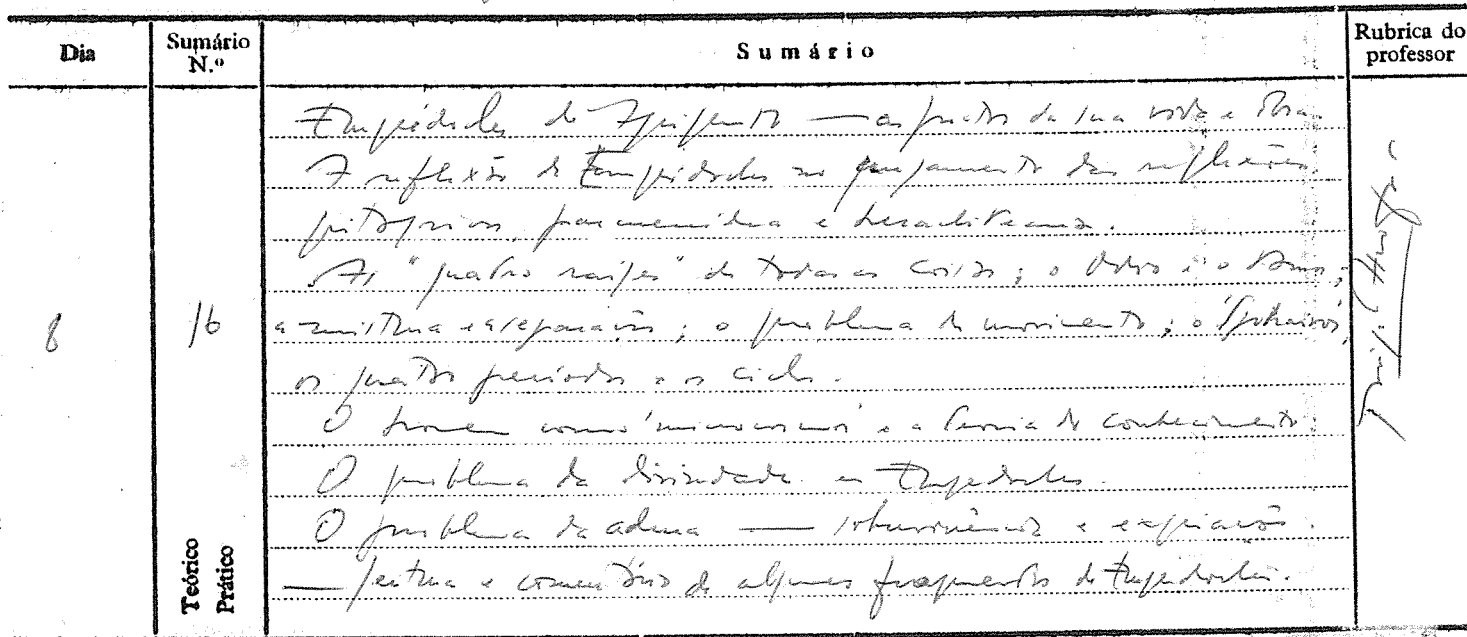 Dia
Sumário N.º
Sumário
Rubrica do professor
Empédocles de Agrigento — aspectos da sua vida e obra.
A reflexão de Empédocles no pensamento das reflexões
pitagórica, parmenídea e heracliteana.
As "quatro raízes" de todas as coisas; o Ódio e o Amor;
a mistura e a separação; o problema do movimento; o Sphairos,
os quatro períodos e os ciclos.
8
16
O homem como 'microcosmos' e a teoria do conhecimento.
O problema da divindade em Empédocles.
O problema da alma — sobrevivência e expiação.
— leitura e comentário de alguns fragmentos de Empédocles.
Teórico
Prático